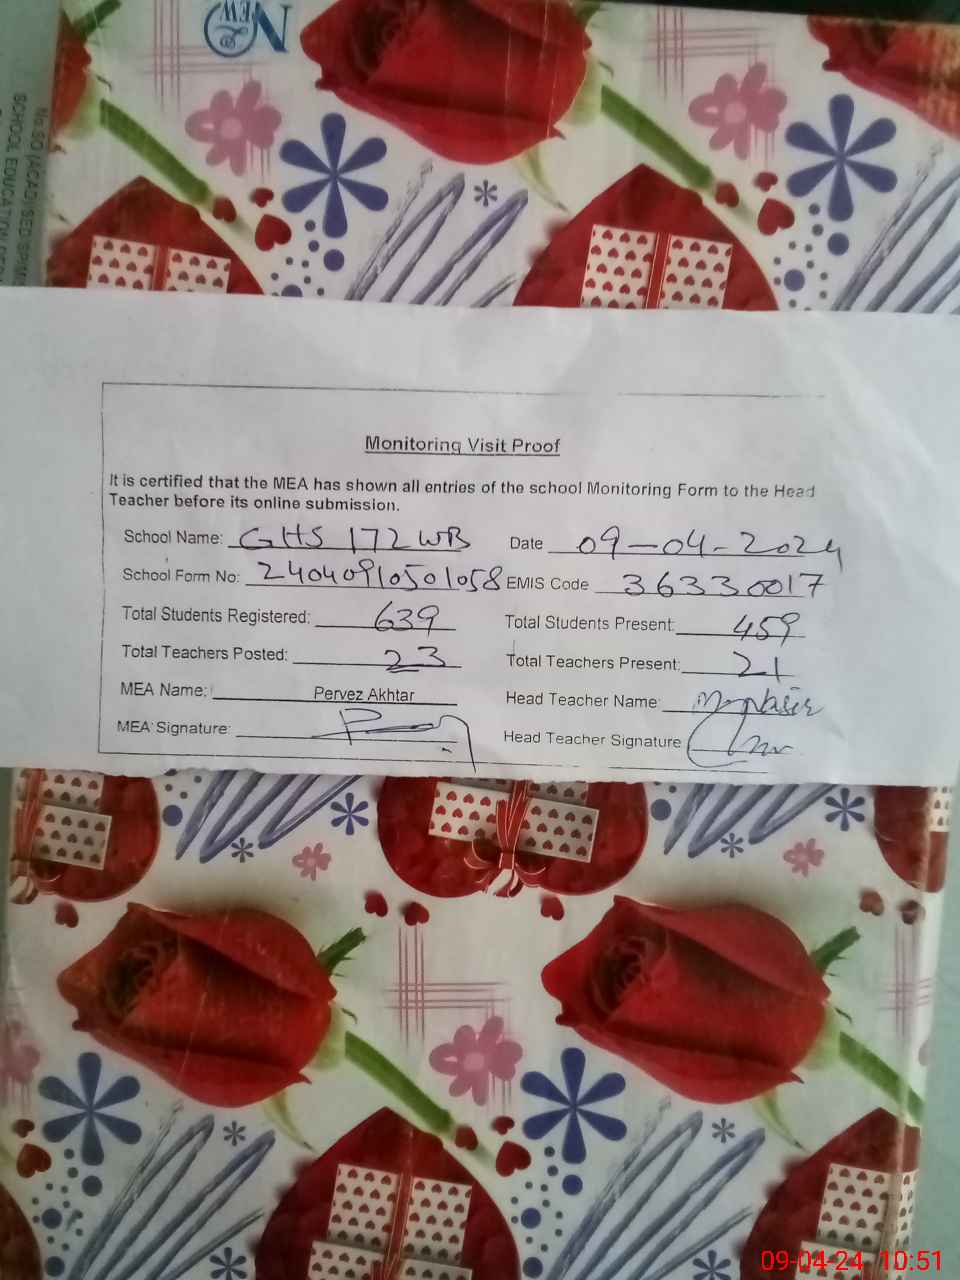 NEW
No.SO (ACAD)/SED/SPRIM
SCHOOL EDUCATION DEP
Monitoring Visit Proof
It is certified that the MEA has shown all entries of the school Monitoring Form to the Head
Teacher before its online submission.
School Name: GHS 172 WB Date 09-04-2024
School Form No: 24040910501058 EMIS Code 36330017
Total Students Registered: 639 Total Students Present: 459
Total Teachers Posted: 23 Total Teachers Present: 21
MEA Name: Pervez Akhtar Head Teacher Name:
MEA Signature: Head Teacher Signature
09-04-24 10:51